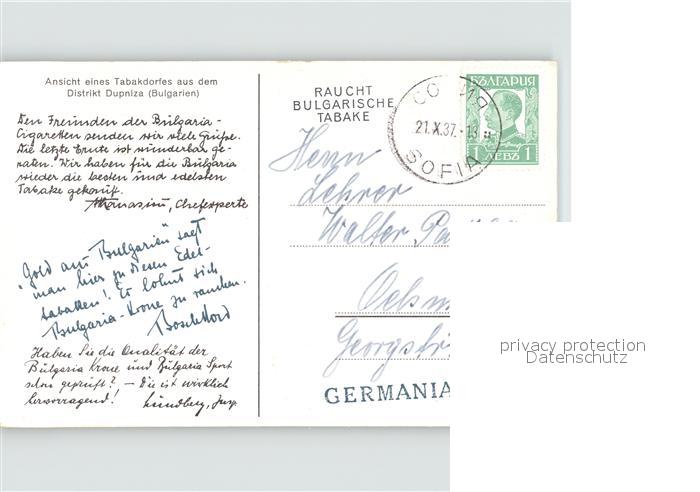 Ansicht eines Tabakdorfes aus dem
Distrikt Dupniza (Bulgarien)
Den Freunden der Bulgaria-
Cigaretten senden wir viele Grüße.
Die letzte Ernte ist wunderbar ge-
raten. Wir haben für die Bulgaria
wieder die besten und edelsten
Tabake gekauft.
Athanasiu, Chefexperte
Gold aus Bulgarien sagt
man hier zu diesen Edel-
tabaken! Es lohnt sich
Bulgaria-Krone zu rauchen.
Haben Sie die Qualität der
Bulgaria Krone und Bulgaria Sport
schon geprüft? – Sie ist wirklich
hervorragend! Lundberg, Insp.
RAUCHT
BULGARISCHE
TABAKE
СОФИЯ
21.X.37.-13
SOFIA
БЪЛГАРИЯ
1 ЛЕВЪ 1
Herrn
Lehrer
Walter
Georgstr
GERMANIA
privacy protection
Datenschutz